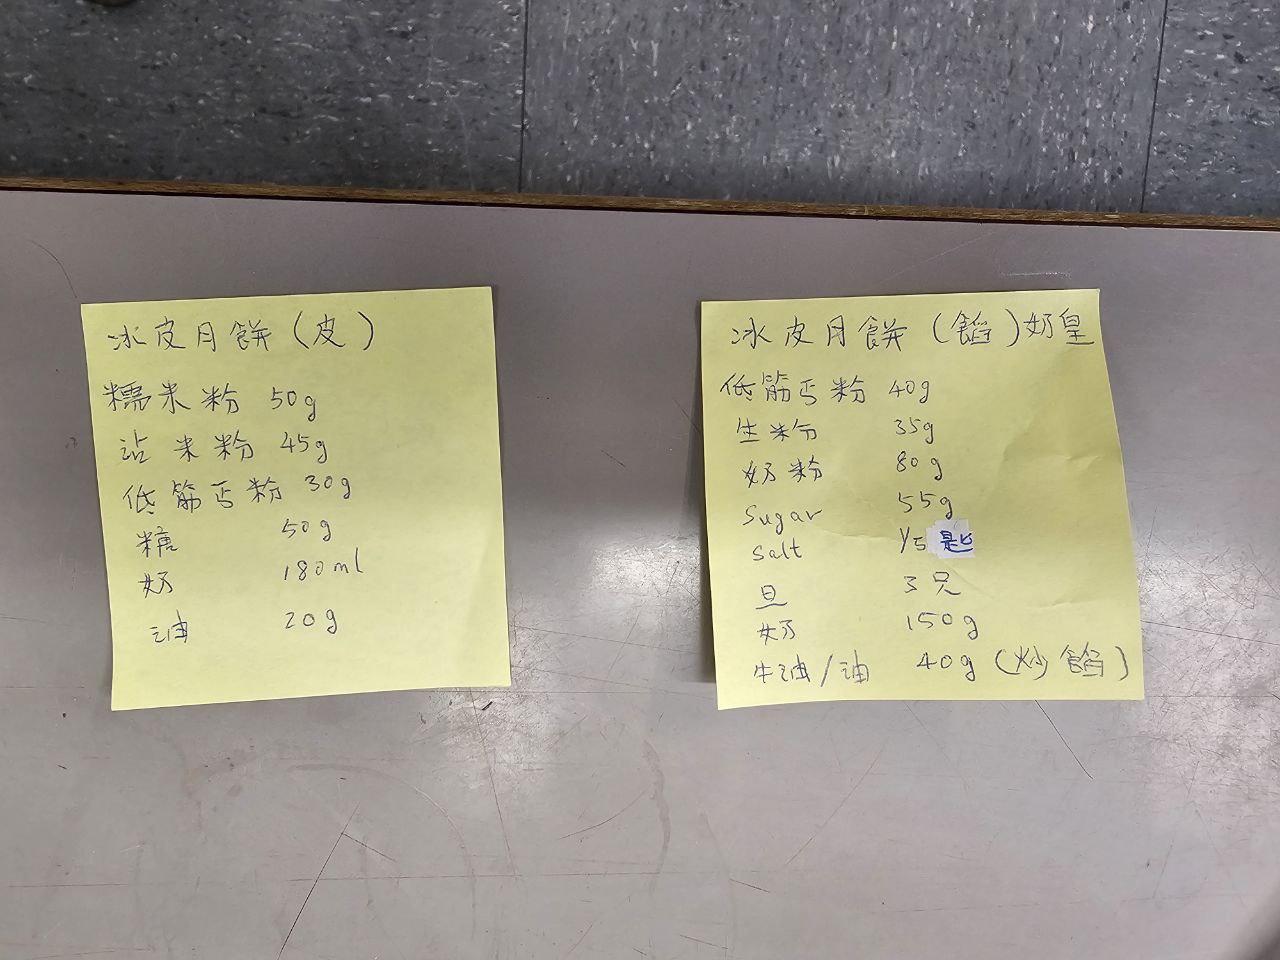 冰皮月餅(皮)
糯米粉 50g
沾米粉 45g
低筋丐粉 30g
糖 50g
奶 180ml
油 20g
冰皮月餅(餡)奶皇
低筋丐粉 40g
生粉 35g
奶粉 80g
Sugar 55g
Salt 1/5匙
旦 3只
奶 150g
牛油/油 40g(炒餡)